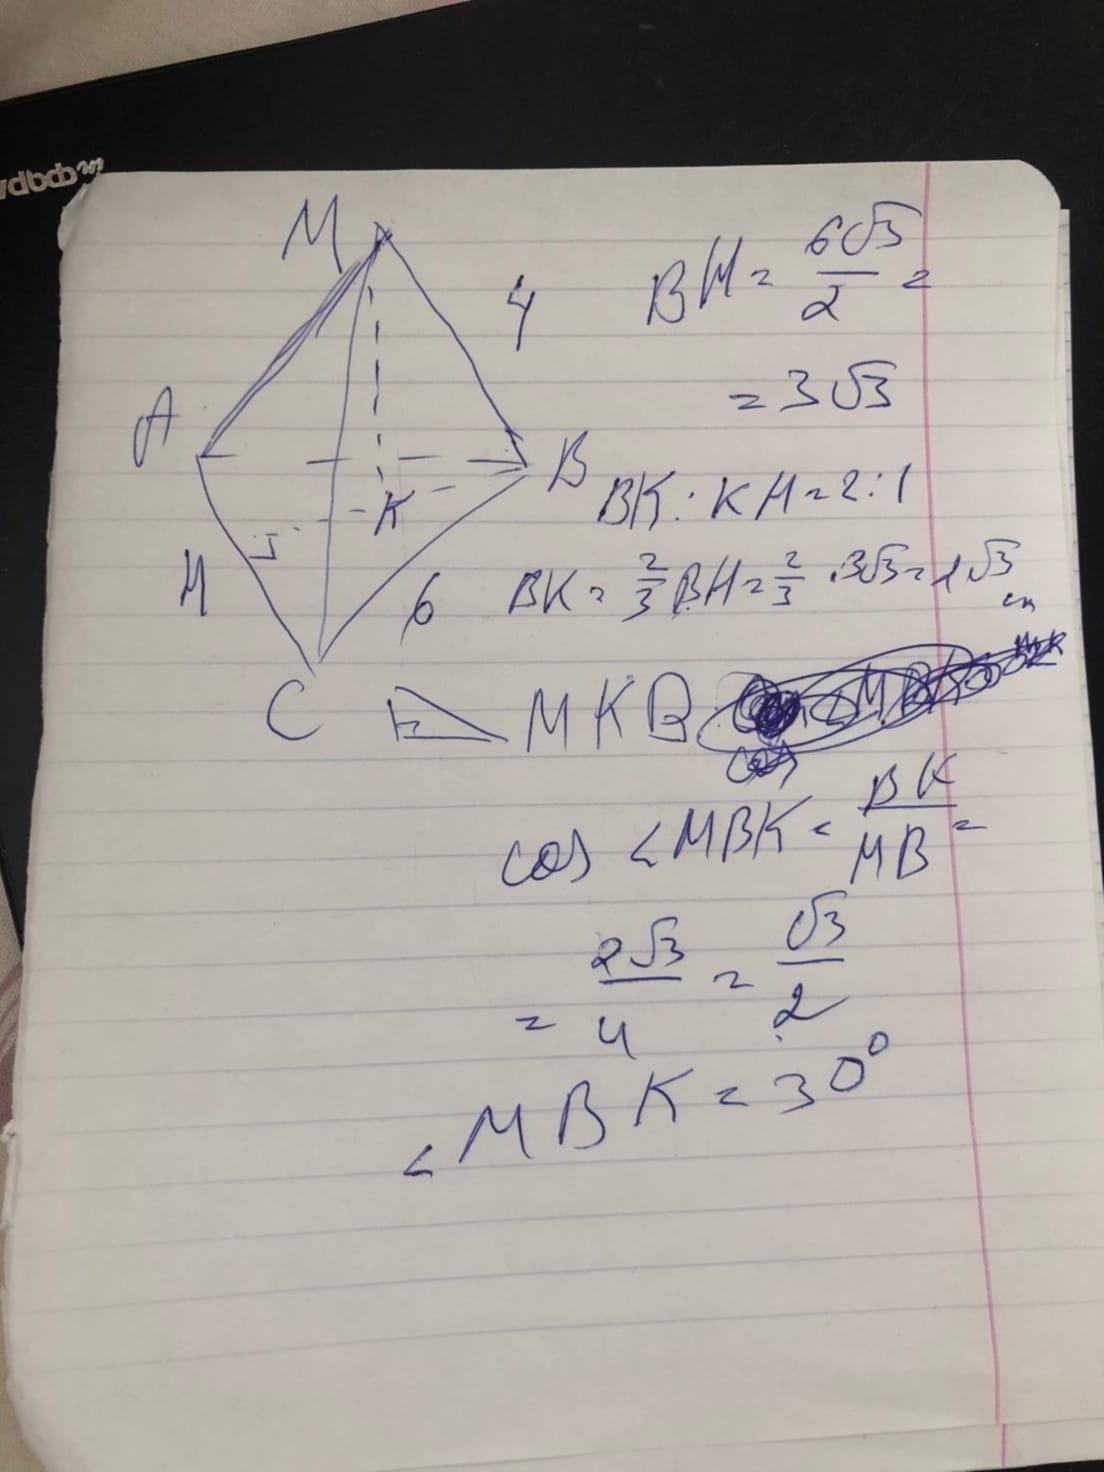 M
4
A
B
K
H
6
C
BH = 6√3/2 =
= 3√3
BK : KH = 2:1
BK = 2/3 BH = 2/3 · 3√3 = 2√3
см
MKB
cos
cos ∠MBK = BK/MB =
= 2√3/4 = √3/2
∠MBK = 30°